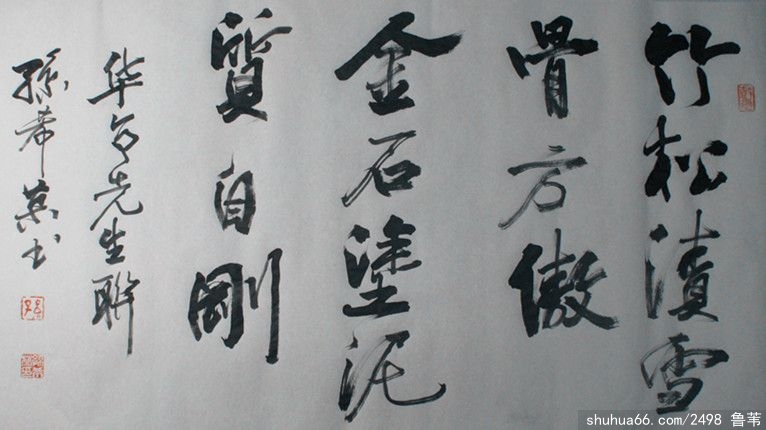 竹松漬雪
骨方傲
金石塗泥
質自剛
华今先生聯
孫希其书
shuhua66.com/2498 鲁苇